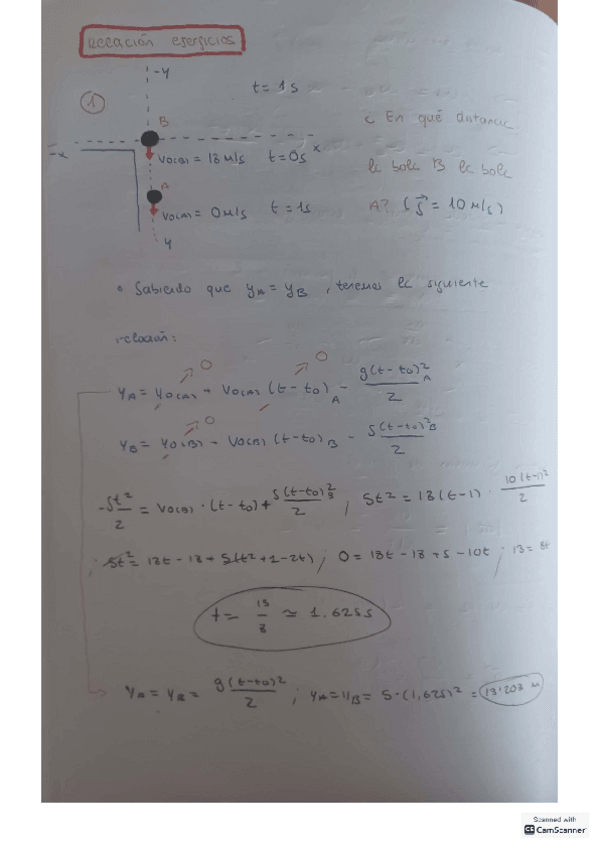 Relación ejercicios
-y
t = 1s
①
B
c En qué distancia
-x
x
V0(B) = 18 m/s t = 0s
la bola B la bola
A
V0(A) = 0 m/s t = 1s
A? (g = 10 m/s)
y
• Sabiendo que yA = yB , tenemos la siguiente
relación:
0 0
yA = y0(A) + V0(A) (t - t0)A - g(t - t0)²A / 2
0
yB = y0(B) - V0(B) (t - t0)B - g(t - t0)²B / 2
-gt² / 2 = V0(B) · (t - t0) + g(t - t0)²B / 2 ; 5t² = 18(t-1) · 10(t-1)² / 2
; 5t² = 18t - 18 + 5(t² + 1 - 2t) ; 0 = 18t - 18 + 5 - 10t ; 13 = 8t
t = 13 / 8 ≃ 1.625s
yA = yB = g(t - t0)² / 2 ; yA = yB = 5 · (1,625)² = 13'203 m
Scanned with
CS CamScanner